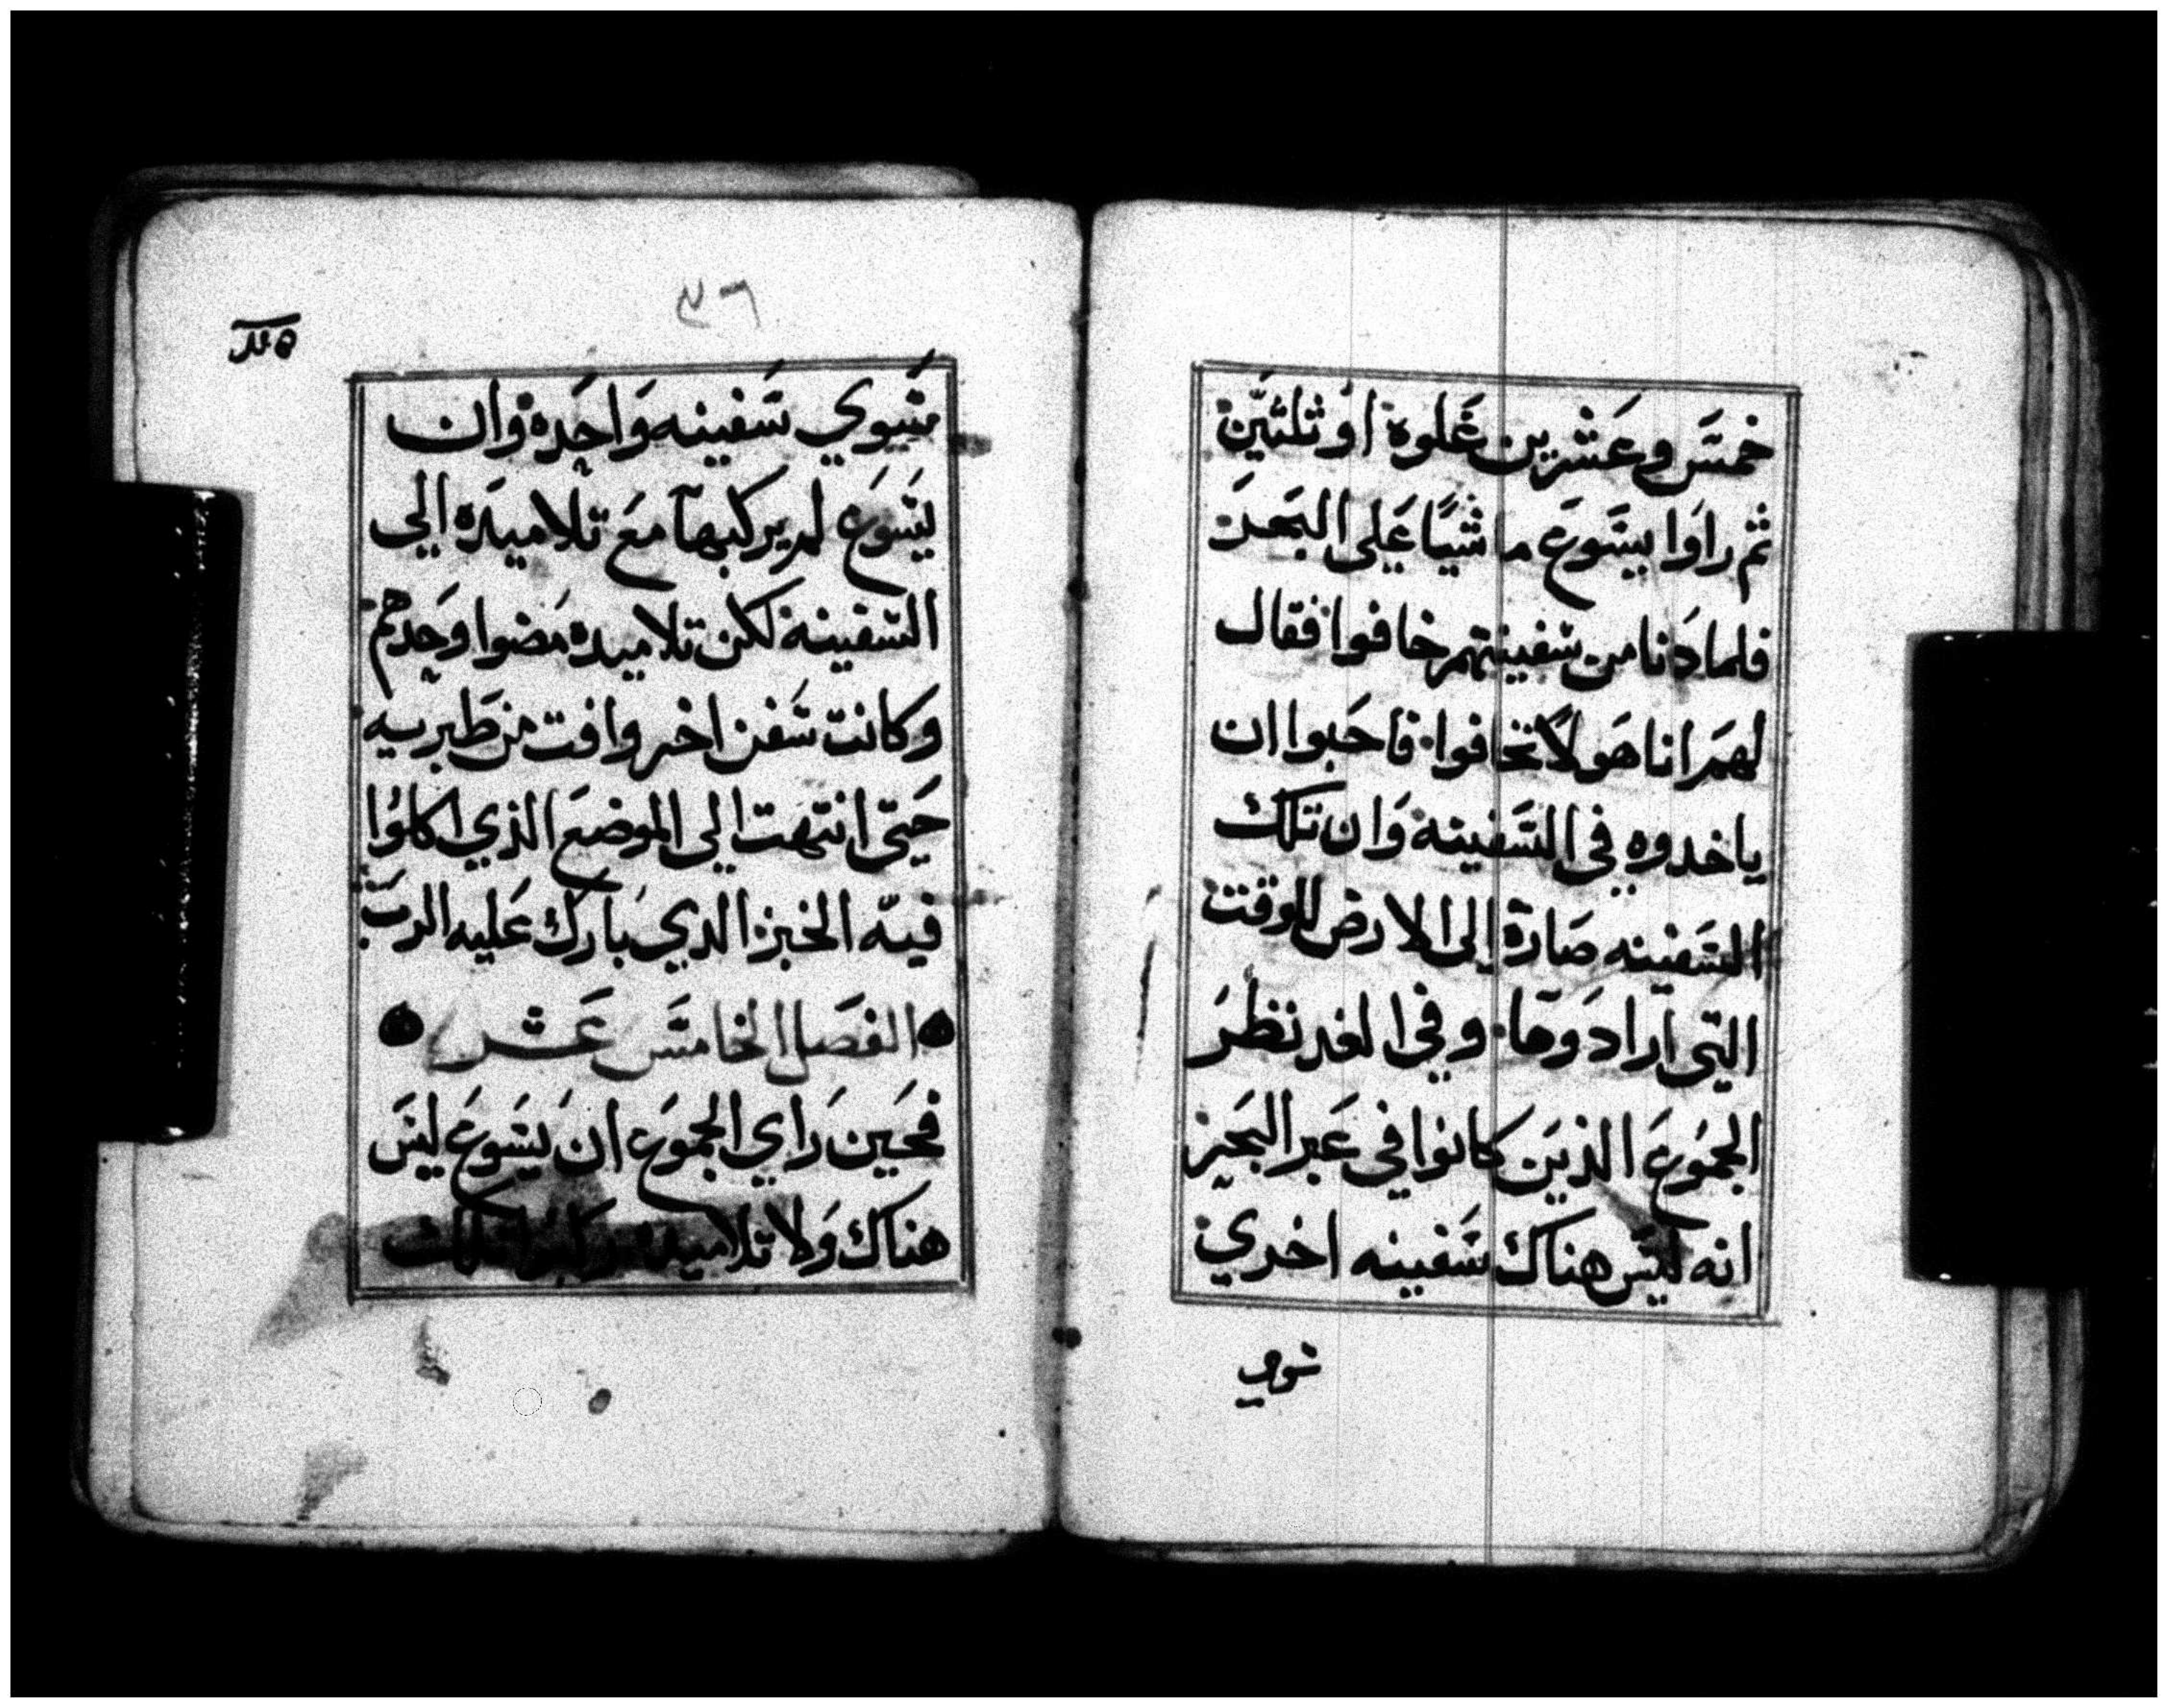 خمسَ وعَشرين غَلوة او ثلثَين
ثم راوا يسَوعَ ماشيًا عَلى البَحرَ
فلما دَنا من سَفينتهم خافوا فقال
لهمَ انا هَو لا تخافوا فاحَبوا ان
ياخدوه في السَفينة وَان تلكَ
السَفينه صَارة الى الارض للوقت
التي ارادَوها وفي الغد نظرَ
الجموَعَ الذيَن كانوا في عَبر البَحر
انه ليسَ هناك سَفينه اخري
سوي
٣٦
سَوي سَفينه وَاحَدة وان
يسَوَع لم يركبها معَ تلاميدَه الي
السَفينة لكن تلاميده مَضوا وحَدهم
وكانت سَفن اخر وافت من طَبريه
حَتى انتهت الي الموضعَ الذي اكلوُا
فيه الخبز الدي بارك عَليه الربَ
الفصَل الخامسَ عَشر
فحَين رَاي الجموَعَ ان يسَوعَ ليسَ
هناك وَلا تلاميده ركبوا تلك